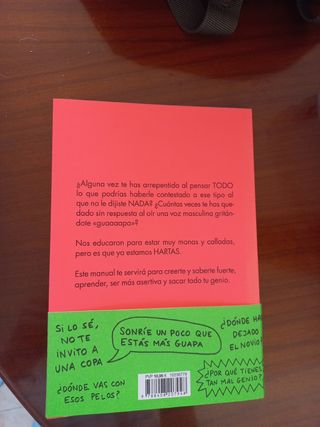 ¿Alguna vez te has arrepentido al pensar TODO
lo que podrías haberle contestado a ese tipo al
que no le dijiste NADA? ¿Cuántas veces te has que-
dado sin respuesta al oír una voz masculina gritán-
dote «guaaaapa»?
Nos educaron para estar muy monas y calladas,
pero es que ya estamos HARTAS.
Este manual te servirá para creerte y saberte fuerte,
aprender, ser más asertiva y sacar todo tu genio.
SI LO SÉ,
NO TE
INVITO A
UNA COPA
SONRÍE UN POCO QUE
ESTÁS MÁS GUAPA
¿DÓNDE HA
DEJADO
EL NOVIO?
¿DÓNDE VAS CON
ESOS PELOS?
¿POR QUÉ TIENES
TAN MAL GENIO?
PVP